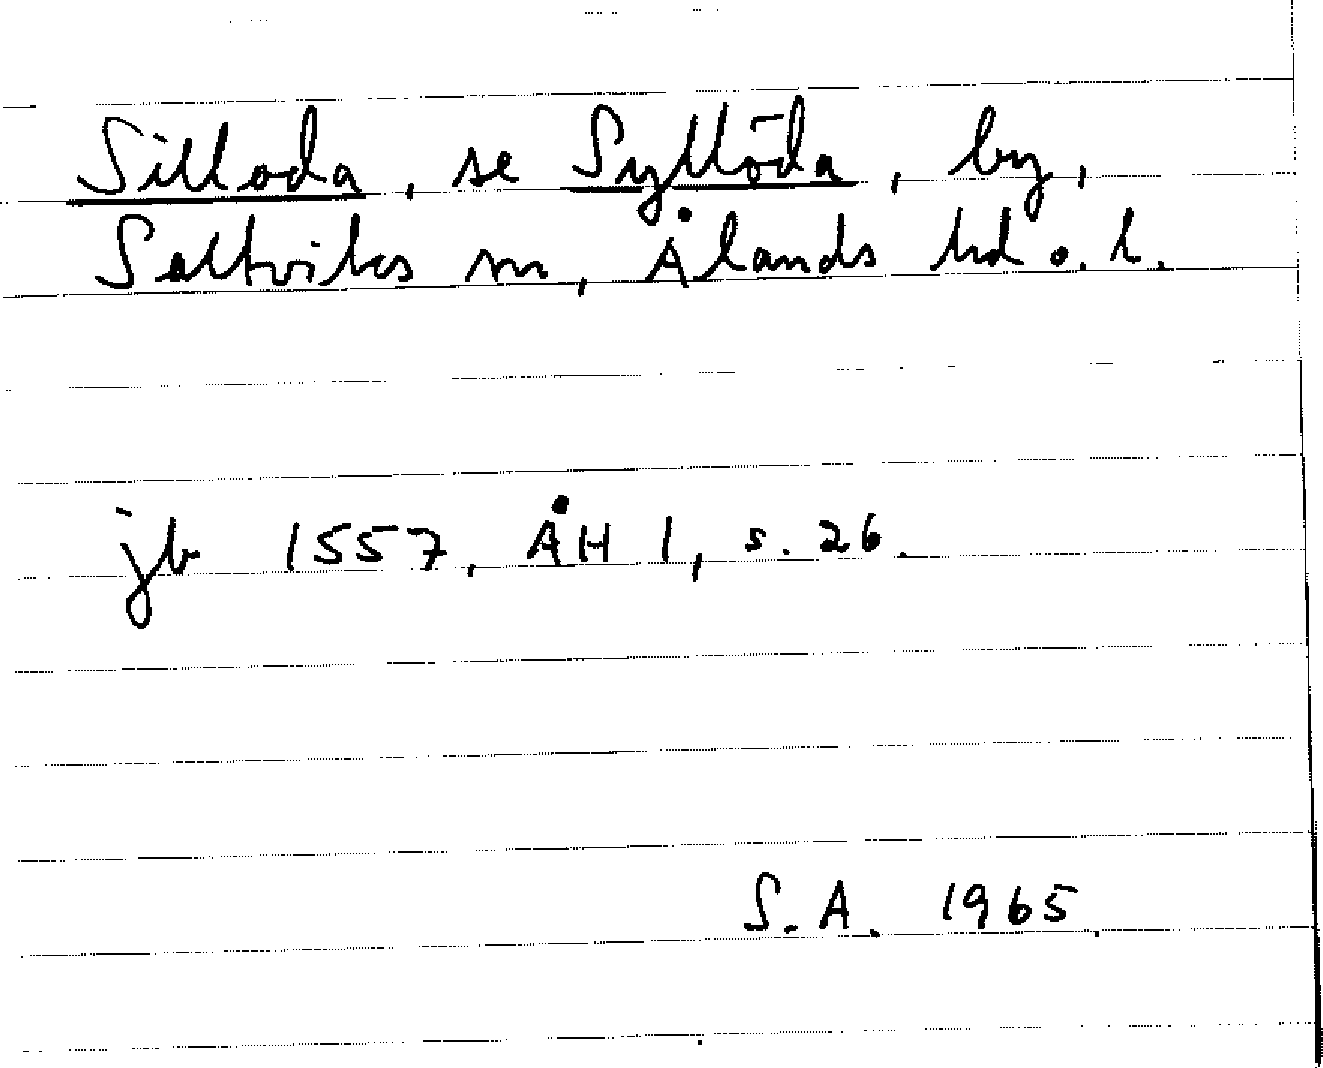 Silloda, se Syllöda, by,
Saltviks sn, Ålands hd o. l.
jb 1557, ÅH 1, s. 26.
S. A. 1965.